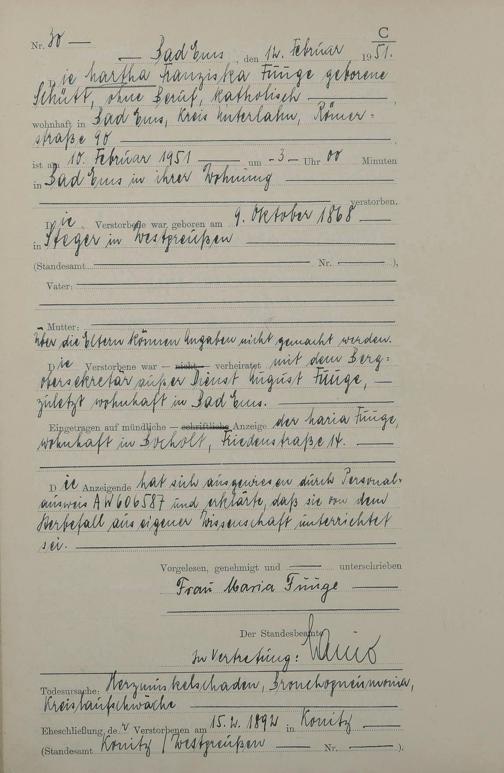 C
Nr. 30
Bad Ems, den 12. Februar 1951.
Die Martha Franziska Fuuge geborene
Schütt, ohne Beruf, katholisch,
wohnhaft in Bad Ems, Kreis Unterlahn, Römer=
straße 90
ist am 10. Februar 1951 um -3- Uhr 00 Minuten
in Bad Ems in ihrer Wohnung
verstorben.
Die Verstorbene war geboren am 9. Oktober 1868
in Steger in Westpreußen
(Standesamt Nr. ),
Vater:
Mutter:
Über die Eltern können Angaben nicht gemacht werden.
Die Verstorbene war — nicht — verheiratet mit dem Berg=
obersekretär außer Dienst August Fuuge,
zuletzt wohnhaft in Bad Ems.
Eingetragen auf mündliche — schriftliche Anzeige der Maria Fuuge,
wohnhaft in Bocholt, Friedenstraße 14.
Die Anzeigende hat sich ausgewiesen durch Personal=
ausweis AW606587 und erklärte, daß sie von dem
Sterbefall aus eigener Wissenschaft unterrichtet
sei.
Vorgelesen, genehmigt und unterschrieben
Frau Maria Fuuge
Der Standesbeamte
In Vertretung:
Todesursache: Herzmuskelschaden, Bronchopneumonie,
Kreislaufschwäche
Eheschließung der Verstorbenen am 15.2.1892 in Konitz
(Standesamt Konitz / Westpreußen Nr. ).